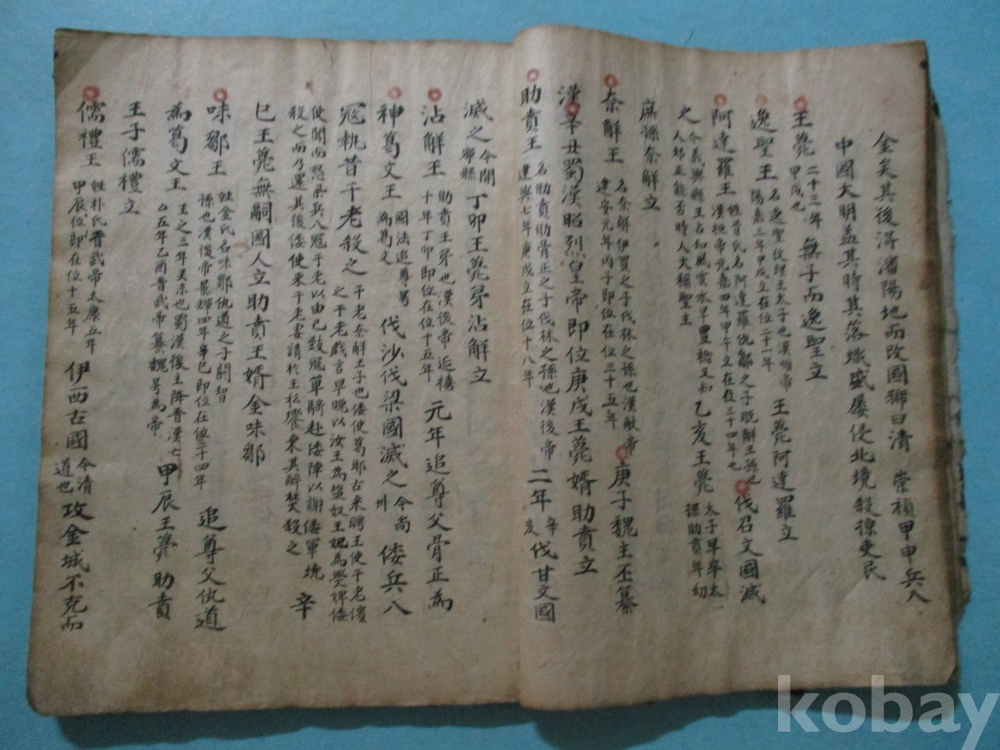 金矣其後得瀋陽地而改國號曰清 崇禎甲申兵入
中國大明盖其時其落熾盛屢侵北境殺掠吏民
王薨 二十三年 無子而逸聖立
甲戌也
逸聖王 名逸聖儒理王太子也漢順帝 王薨阿達羅立
陽嘉三年甲戌立在位二十一年
阿達羅王 姓昔氏名阿達羅伐鄒之子脫解王孫也 伐召文國滅
漢桓帝元嘉四年甲午立在位三十四年也
之 今義興縣王占知風雲水旱豊儉又知 乙亥王薨 太子早卒太
人邪正能否時人大稱聖主 孫助賁年幼
庶孫奈解立
奈解王 名奈解伊買之子伐林之孫也漢獻帝 庚子魏主丕簒
建安元年丙子即位在位三十五年
漢 辛丑蜀漢昭烈皇帝即位庚戌王薨婿助賁立
助賁王 名助賁助骨正之子伐林之孫也漢後帝 二年 辛亥 伐甘文國
建興七年庚戌立在位十八年
滅之 今開寧縣 丁卯王薨弟沾解立
沾解王 助賁王弟也漢後帝延禧 元年追尊父骨正為
十年丁卯即位在位十五年
神葛文王 國法追尊曰為葛文 伐沙伐梁國滅之 今尚州 倭兵入
寇執昔于老殺之 于老奈解王子也倭使葛耶古来聘王使于老儐
之于老戱言早晩以汝王為塩奴王妃為爨婢倭
使聞而怒飛兵入寇于老以由己致寇單騎赴倭陣以謝倭軍執 辛
殺之而乃還其後倭使来于老妻請於王私饗乘其醉焚殺之
巳王薨無嗣國人立助賁王婿金味鄒
味鄒王 姓金氏名味鄒仇道之子閼智 追尊父仇道
孫也漢後帝景輝四年辛巳即位在位二十四年
為葛文王 王之三年炎漢也蜀漢後主降晋漢亡 甲辰王薨助賁
五年乙酉晋武帝簒魏号為帝
王子儒禮立
儒禮王 姓朴氏晋武帝太康五年 伊西古國 今清道也 攻金城不克而
甲辰位即在位十五年
kobay